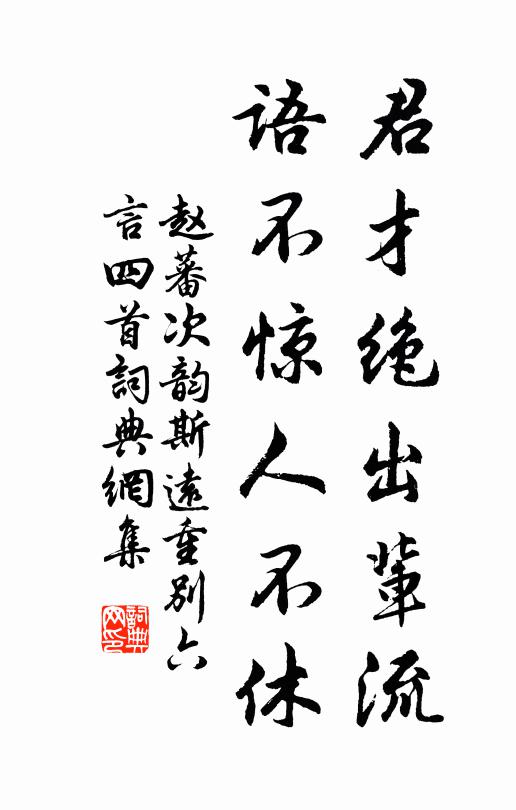 君才绝出輩流
語不惊人不休
赵蕃次韵斯遠重别六
言四首詞典網集
詞典网印